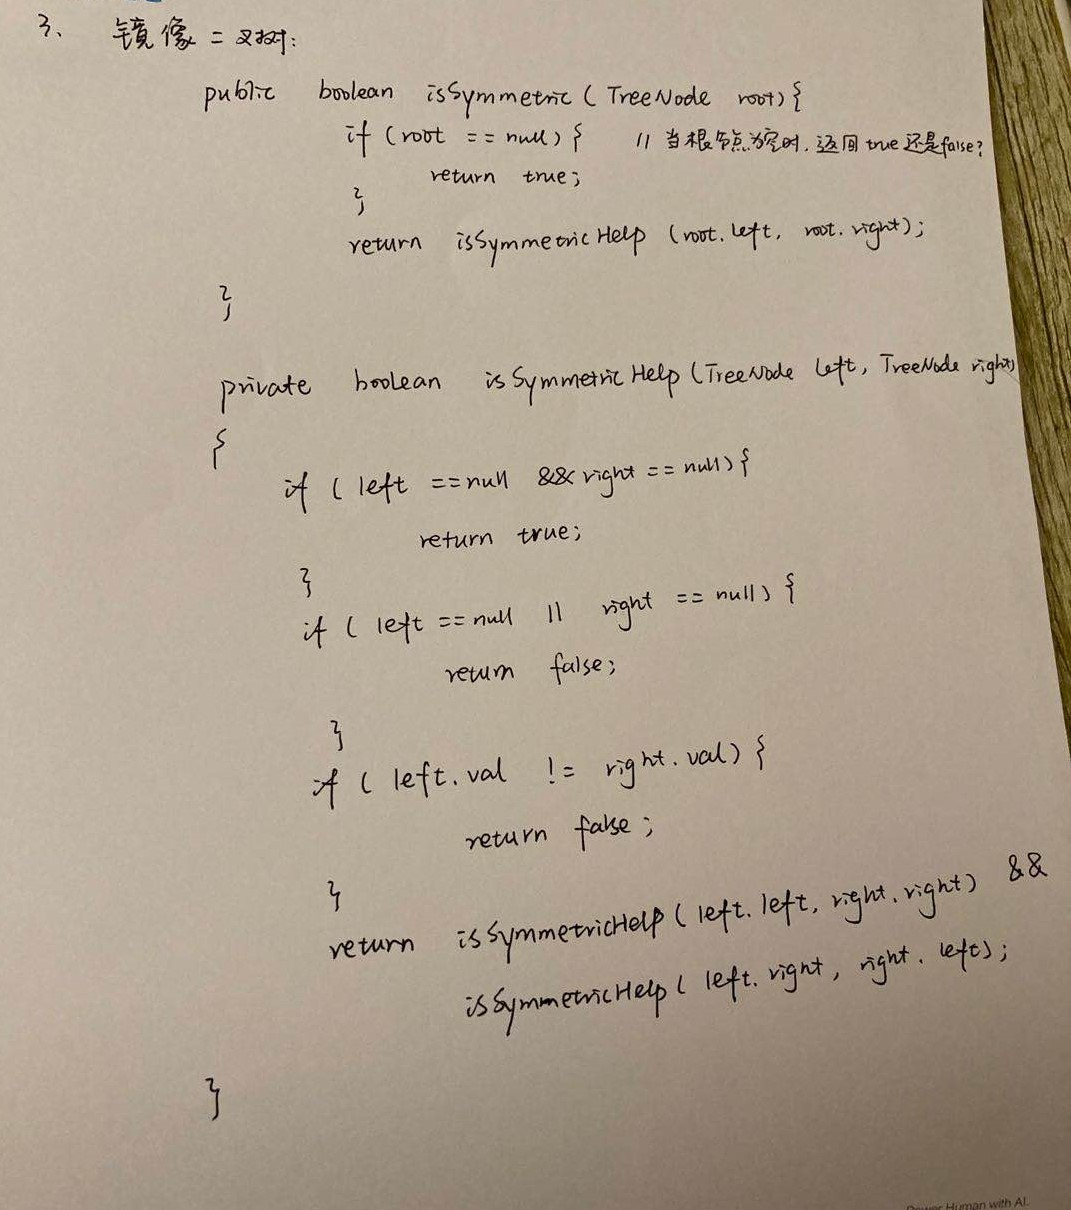 3、 镜像二叉树:
public boolean isSymmetric ( TreeNode root) {
if (root == null) { // 当根节点为空时, 返回 true 还是 false?
return true;
}
return isSymmetricHelp (root.left, root.right);
}
private boolean isSymmetricHelp (TreeNode left, TreeNode right)
{
if ( left == null && right == null) {
return true;
}
if ( left == null || right == null) {
return false;
}
if ( left.val != right.val) {
return false;
}
return isSymmetricHelp ( left.left, right.right) &&
isSymmetricHelp ( left.right, right.left);
}
Power Human with AI.